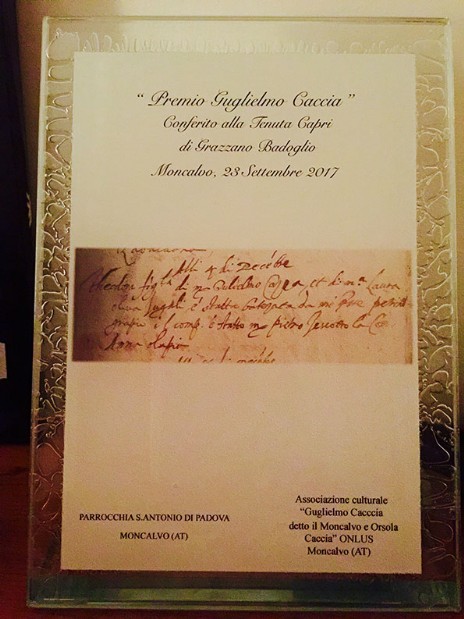 “ Premio Guglielmo Caccia ”
Conferito alla Tenuta Capri
di Grazzano Badoglio
Moncalvo, 23 Settembre 2017
Alli 4 di
figla di Guglielmo et di Laura
è statta da me
è statto Pietro la
Anna
PARROCCHIA S.ANTONIO DI PADOVA
MONCALVO (AT)
Associazione culturale
“Guglielmo Cacccia
detto il Moncalvo e Orsola
Caccia” ONLUS
Moncalvo (AT)